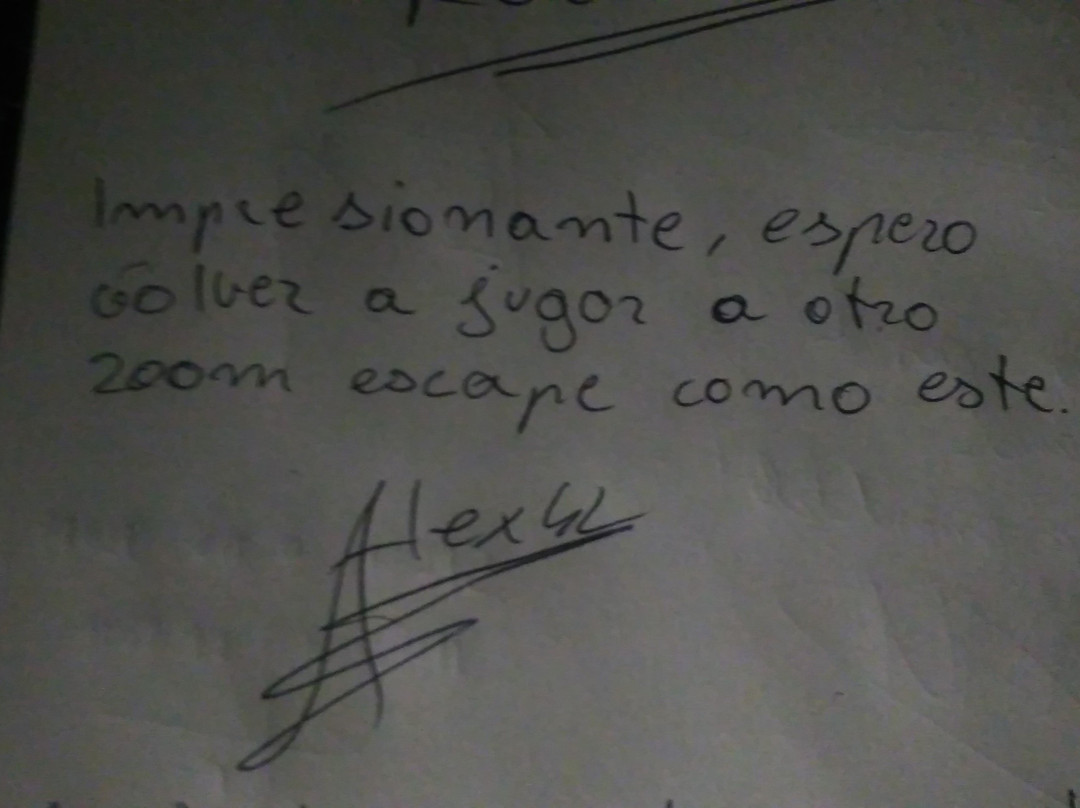 Impresionante, espero
volver a jugar a otro
room escape como este.
Alex